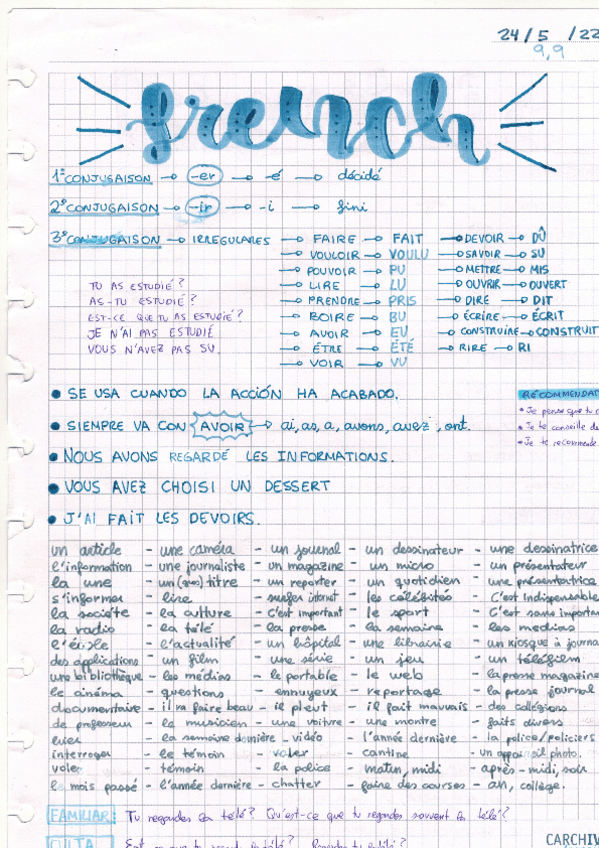 24/5 /22
9,9
french
1ª CONJUGAISON → -er → -é → décidé
2ª CONJUGAISON → -ir → -i → fini
3ª CONJUGAISON → IRREGULARES → FAIRE → FAIT → DEVOIR → DÛ
→ VOULOIR → VOULU → SAVOIR → SU
→ POUVOIR → PU → METTRE → MIS
→ LIRE → LU → OUVRIR → OUVERT
→ PRENDRE → PRIS → DIRE → DIT
→ BOIRE → BU → ÉCRIRE → ÉCRIT
→ AVOIR → EU → CONSTRUIRE → CONSTRUIT
→ ÉTRE → ÉTÉ → RIRE → RI
→ VOIR → VU
TU AS ESTUDIÉ?
AS-TU ESTUDIÉ?
EST-CE QUE TU AS ESTUDIÉ?
JE N'AI PAS ESTUDIÉ
VOUS N'AVEZ PAS SU.
• SE USA CUANDO LA ACCIÓN HA ACABADO.
• SIEMPRE VA CON AVOIR → ai, as, a, avons, avez, ont.
• NOUS AVONS REGARDÉ LES INFORMATIONS.
• VOUS AVEZ CHOISI UN DESSERT
• J'AI FAIT LES DEVOIRS.
RECOMMENDAT
• Je pense que tu
• Je te conseille de
• Je te recommende
un article - une caméra - un journal - un dessinateur - une dessinatrice
l'information - une journaliste - un magazine - un micro - un présentateur
la une - un (gros) titre - un reporter - un quotidien - une présentatrice
s'informer - lire - surfer internet - les célébités - C'est indispensable
la société - la culture - C'est important - le sport - C'est sans importan
la radio - la télé - la presse - la semaine - les medias
- l'actualité - un hôpital - une librairie - un kiosque à journa
des applications - un film - une série - un jeu - un téléfilm
une bibliothèque - les médias - le portable - le web - la presse magazine
le cinéma - questions - ennuyeux - reportage - la presse journal
documentaire - il va faire beau - il pleut - il fait mauvais - des collégiens
de professeur - le musicien - une voiture - une montre - faits divers
hier - la semaine dernière - vidéo - l'année dernière - la police/policiers
interroger - le témoin - voler - cantine - un appareil photo.
voler - témoin - la police - matin, midi - après-midi, soir
le mois passé - l'année dernière - chatter - faire des courses - an, collège.
FAMILIAR: Tu regardes la télé? Qu'est-ce que tu regardes souvent la télé?
CULTA: Est-ce que tu la télé? Regardes tu la télé?
CARCHIV